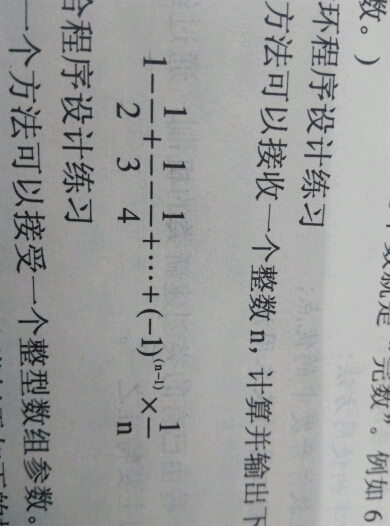 数。）
个数就是“完数”。例如6
环程序设计练习
方法可以接收一个整数n，计算并输出下
1-1/2+1/3-1/4+…+(-1)^(n-1)×1/n
合程序设计练习
一个方法可以接受一个整型数组参数。